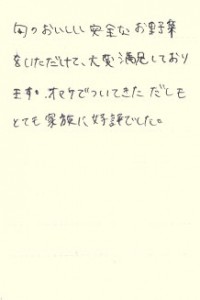 旬のおいしい安全なお野菜
をいただけて、大変満足しており
ます。オマケでついてきただしも
とても家族に好評でした。